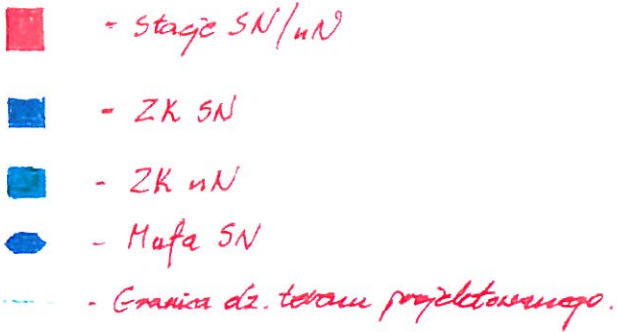 - Stacje SN/nN
- ZK SN
- ZK nN
- Mufa SN
- Granica dz. terenu projektowanego.